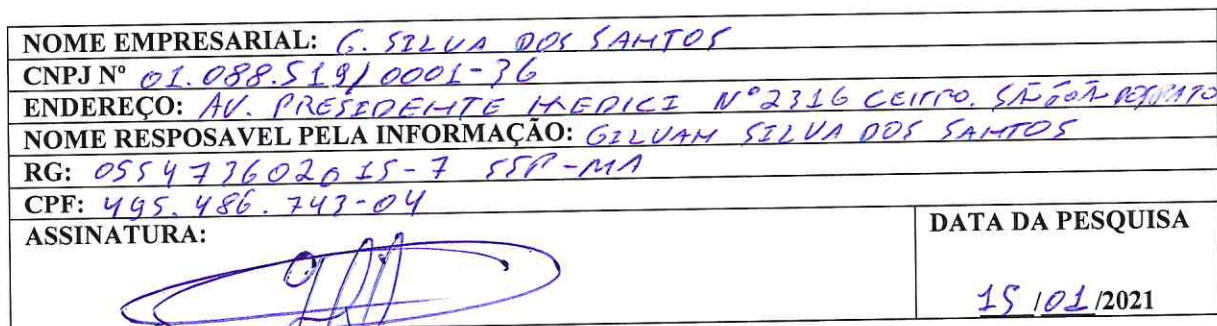 NOME EMPRESARIAL: G. SILVA DOS SANTOS
CNPJ Nº 01.088.519/0001-36
ENDEREÇO: AV. PRESIDENTE MEDICI Nº 2316 CENTRO. SÃO JOÃO
NOME RESPOSAVEL PELA INFORMAÇÃO: GILVAN SILVA DOS SANTOS
RG: 055473602015-7 SSP-MA
CPF: 495.486.743-04
ASSINATURA:
DATA DA PESQUISA
15/01/2021